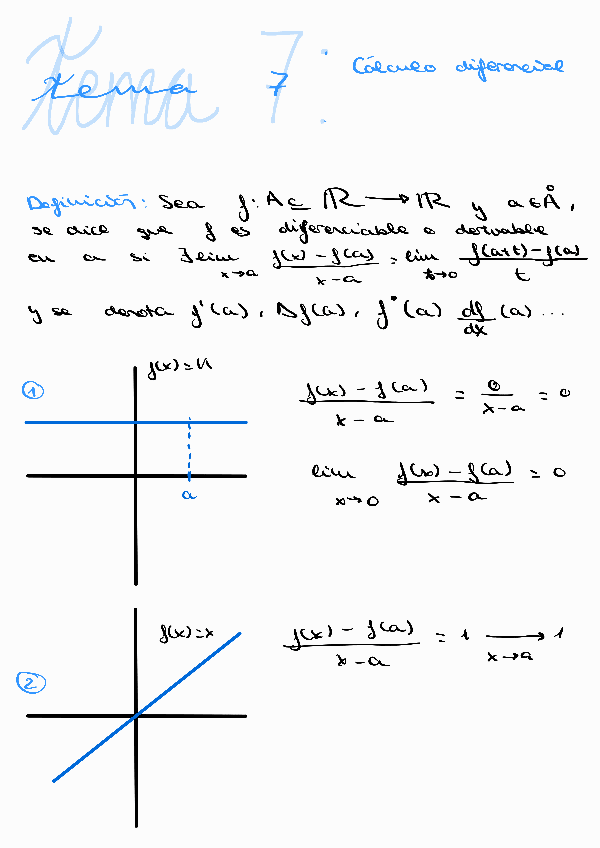 Tema 7: Cálculo diferencial
Tema 7
Definición: Sea f: A ⊆ ℝ → ℝ y a ∈ Å,
se dice que f es diferenciable o derivable
en a si ∃ lim x→a (f(x) - f(a))/(x - a) = lim t→0 (f(a+t) - f(a))/t
y se denota f'(a), Df(a), f˙(a) df/dx (a) ...
① f(x) = K
(f(x) - f(a))/(x - a) = 0/(x - a) = 0
a
lim x→0 (f(x) - f(a))/(x - a) = 0
② f(x) = x
(f(x) - f(a))/(x - a) = 1 → x→a 1